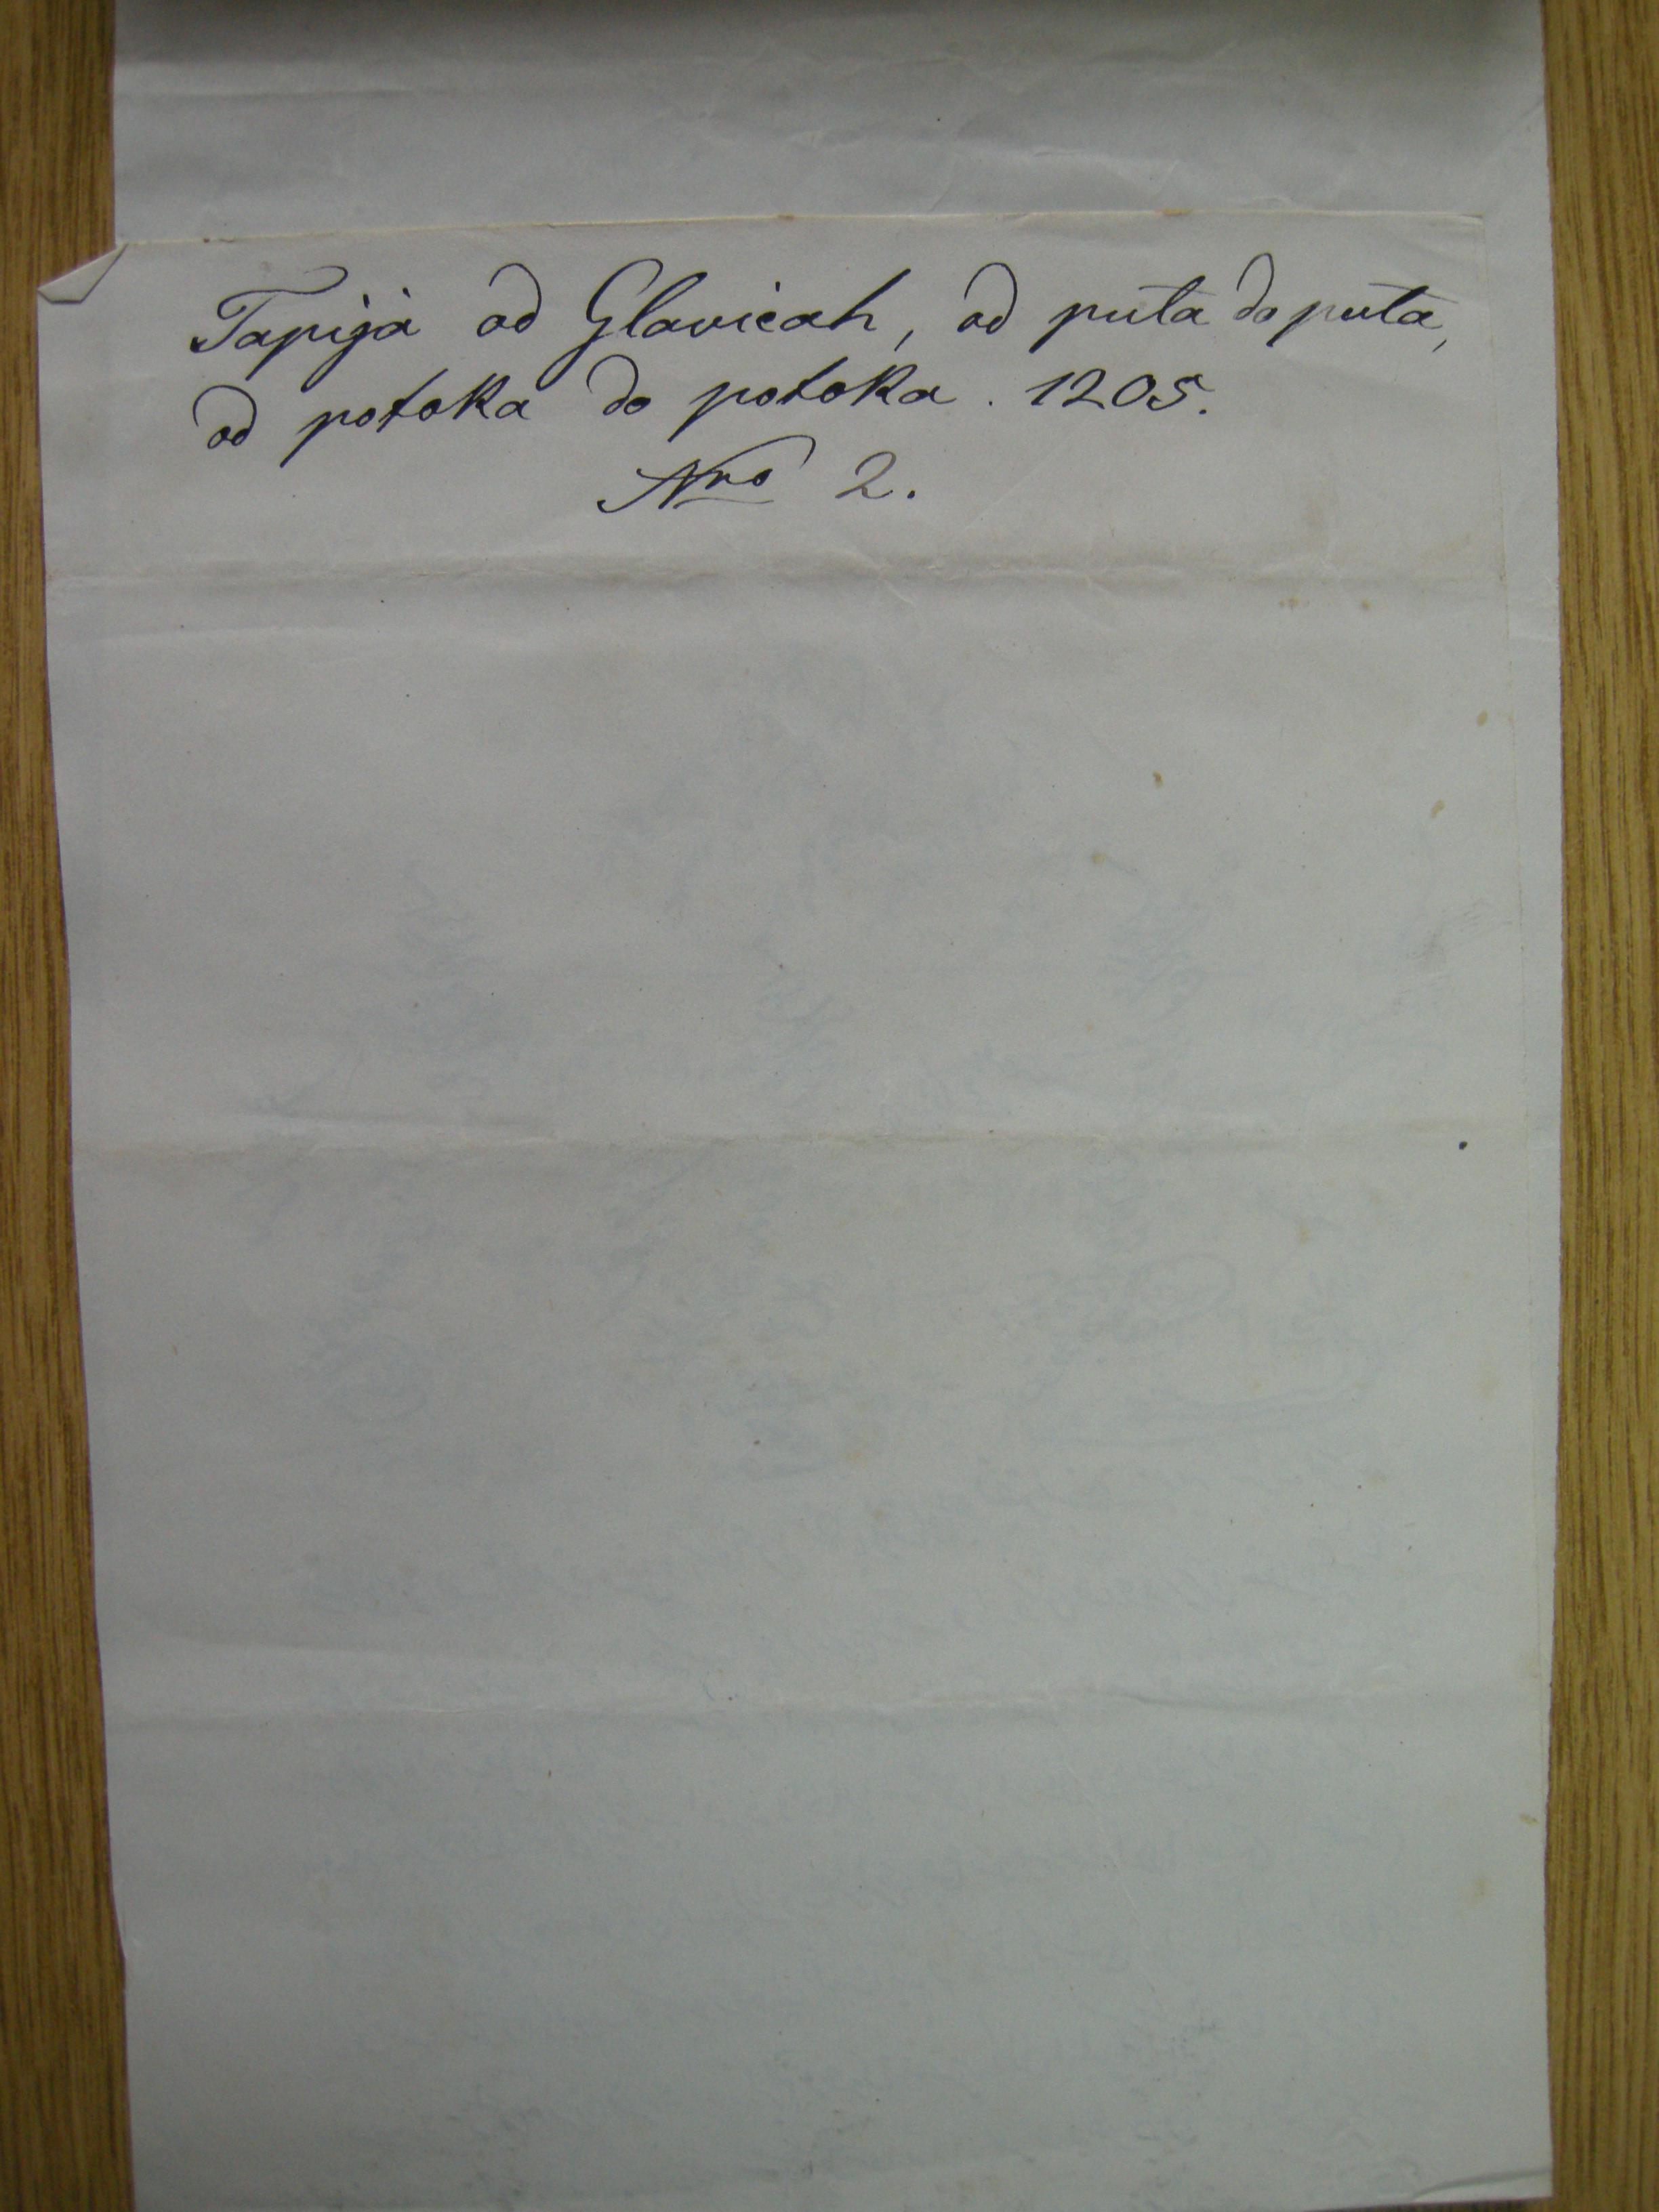 Tapija od Glavicah, od puta do puta,
od potoka do potoka. 1205.
Nro 2.